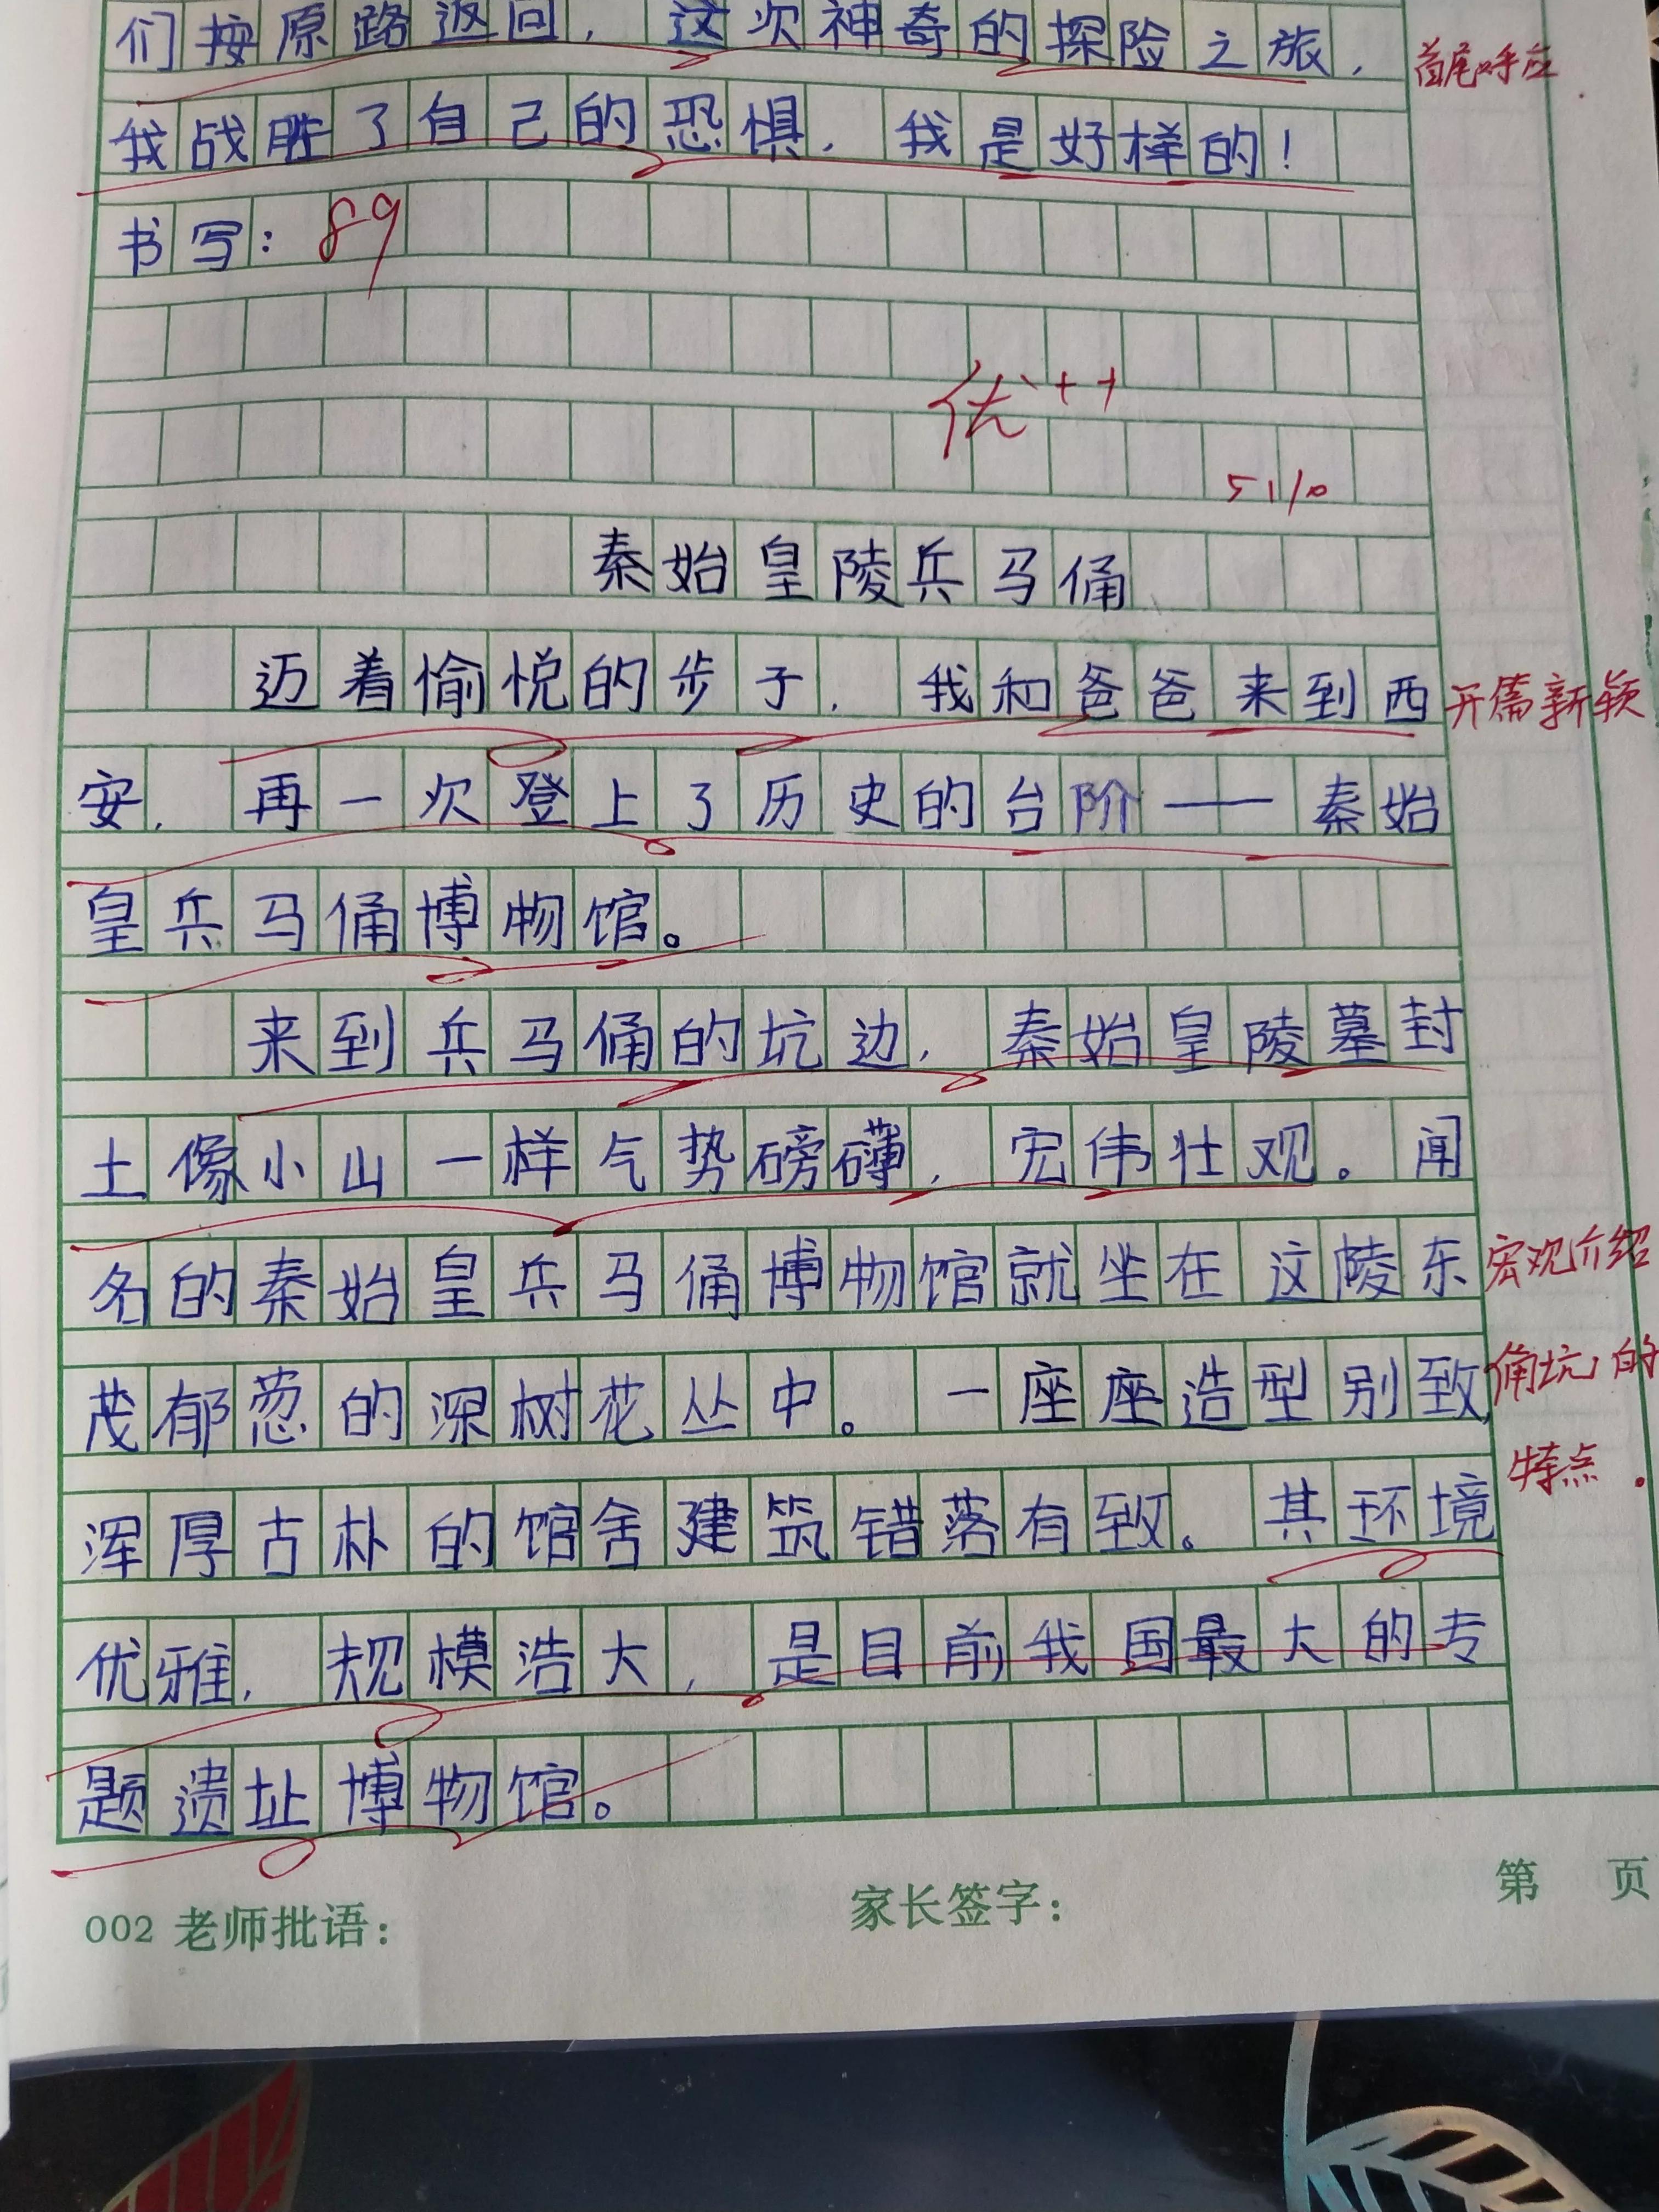 们按原路返回，这次神奇的探险之旅，
首尾呼应
我战胜了自己的恐惧，我是好样的！
书写：89
优++
51/0
秦始皇陵兵马俑
迈着愉悦的步子，我和爸爸来到西
开篇新颖
安，再一次登上了历史的台阶——秦始
皇兵马俑博物馆。
来到兵马俑的坑边，秦始皇陵墓封
土像小山一样气势磅礴，宏伟壮观。闻
名的秦始皇兵马俑博物馆就坐在这陵东
宏观介绍
茂郁葱的深树花丛中。一座座造型别致，
俑坑的
浑厚古朴的馆舍建筑错落有致。其环境
特点。
优雅，规模浩大，是目前我国最大的专
题遗址博物馆。
002 老师批语：
家长签字：
第 页